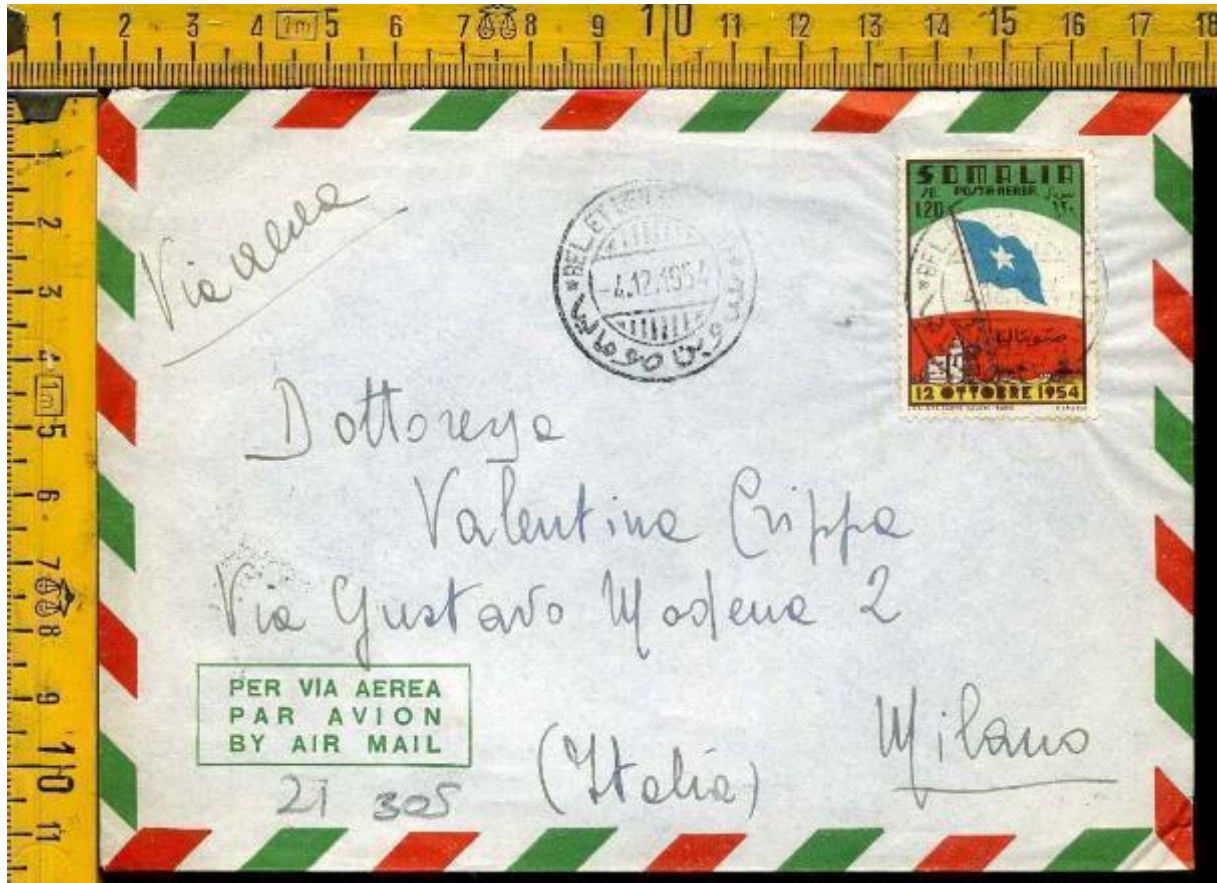 1 2 3 4 1m 5 6 7 8 9 10 11 12 13 14 15 16 17 18
1 2 3 4 1m 5 6 7 8 9 10 11
Via aerea
BEL ET
-4.12.1954
وين صوماليا
SOMALIA
POSTA AEREA
So. صومالي
1.20 ١,٢٠
BEL
12 OTTOBRE 1954
Dottoressa
Valentina Crippa
Via Gustavo Modena 2
Milano
(Italia)
PER VIA AEREA
PAR AVION
BY AIR MAIL
21 305